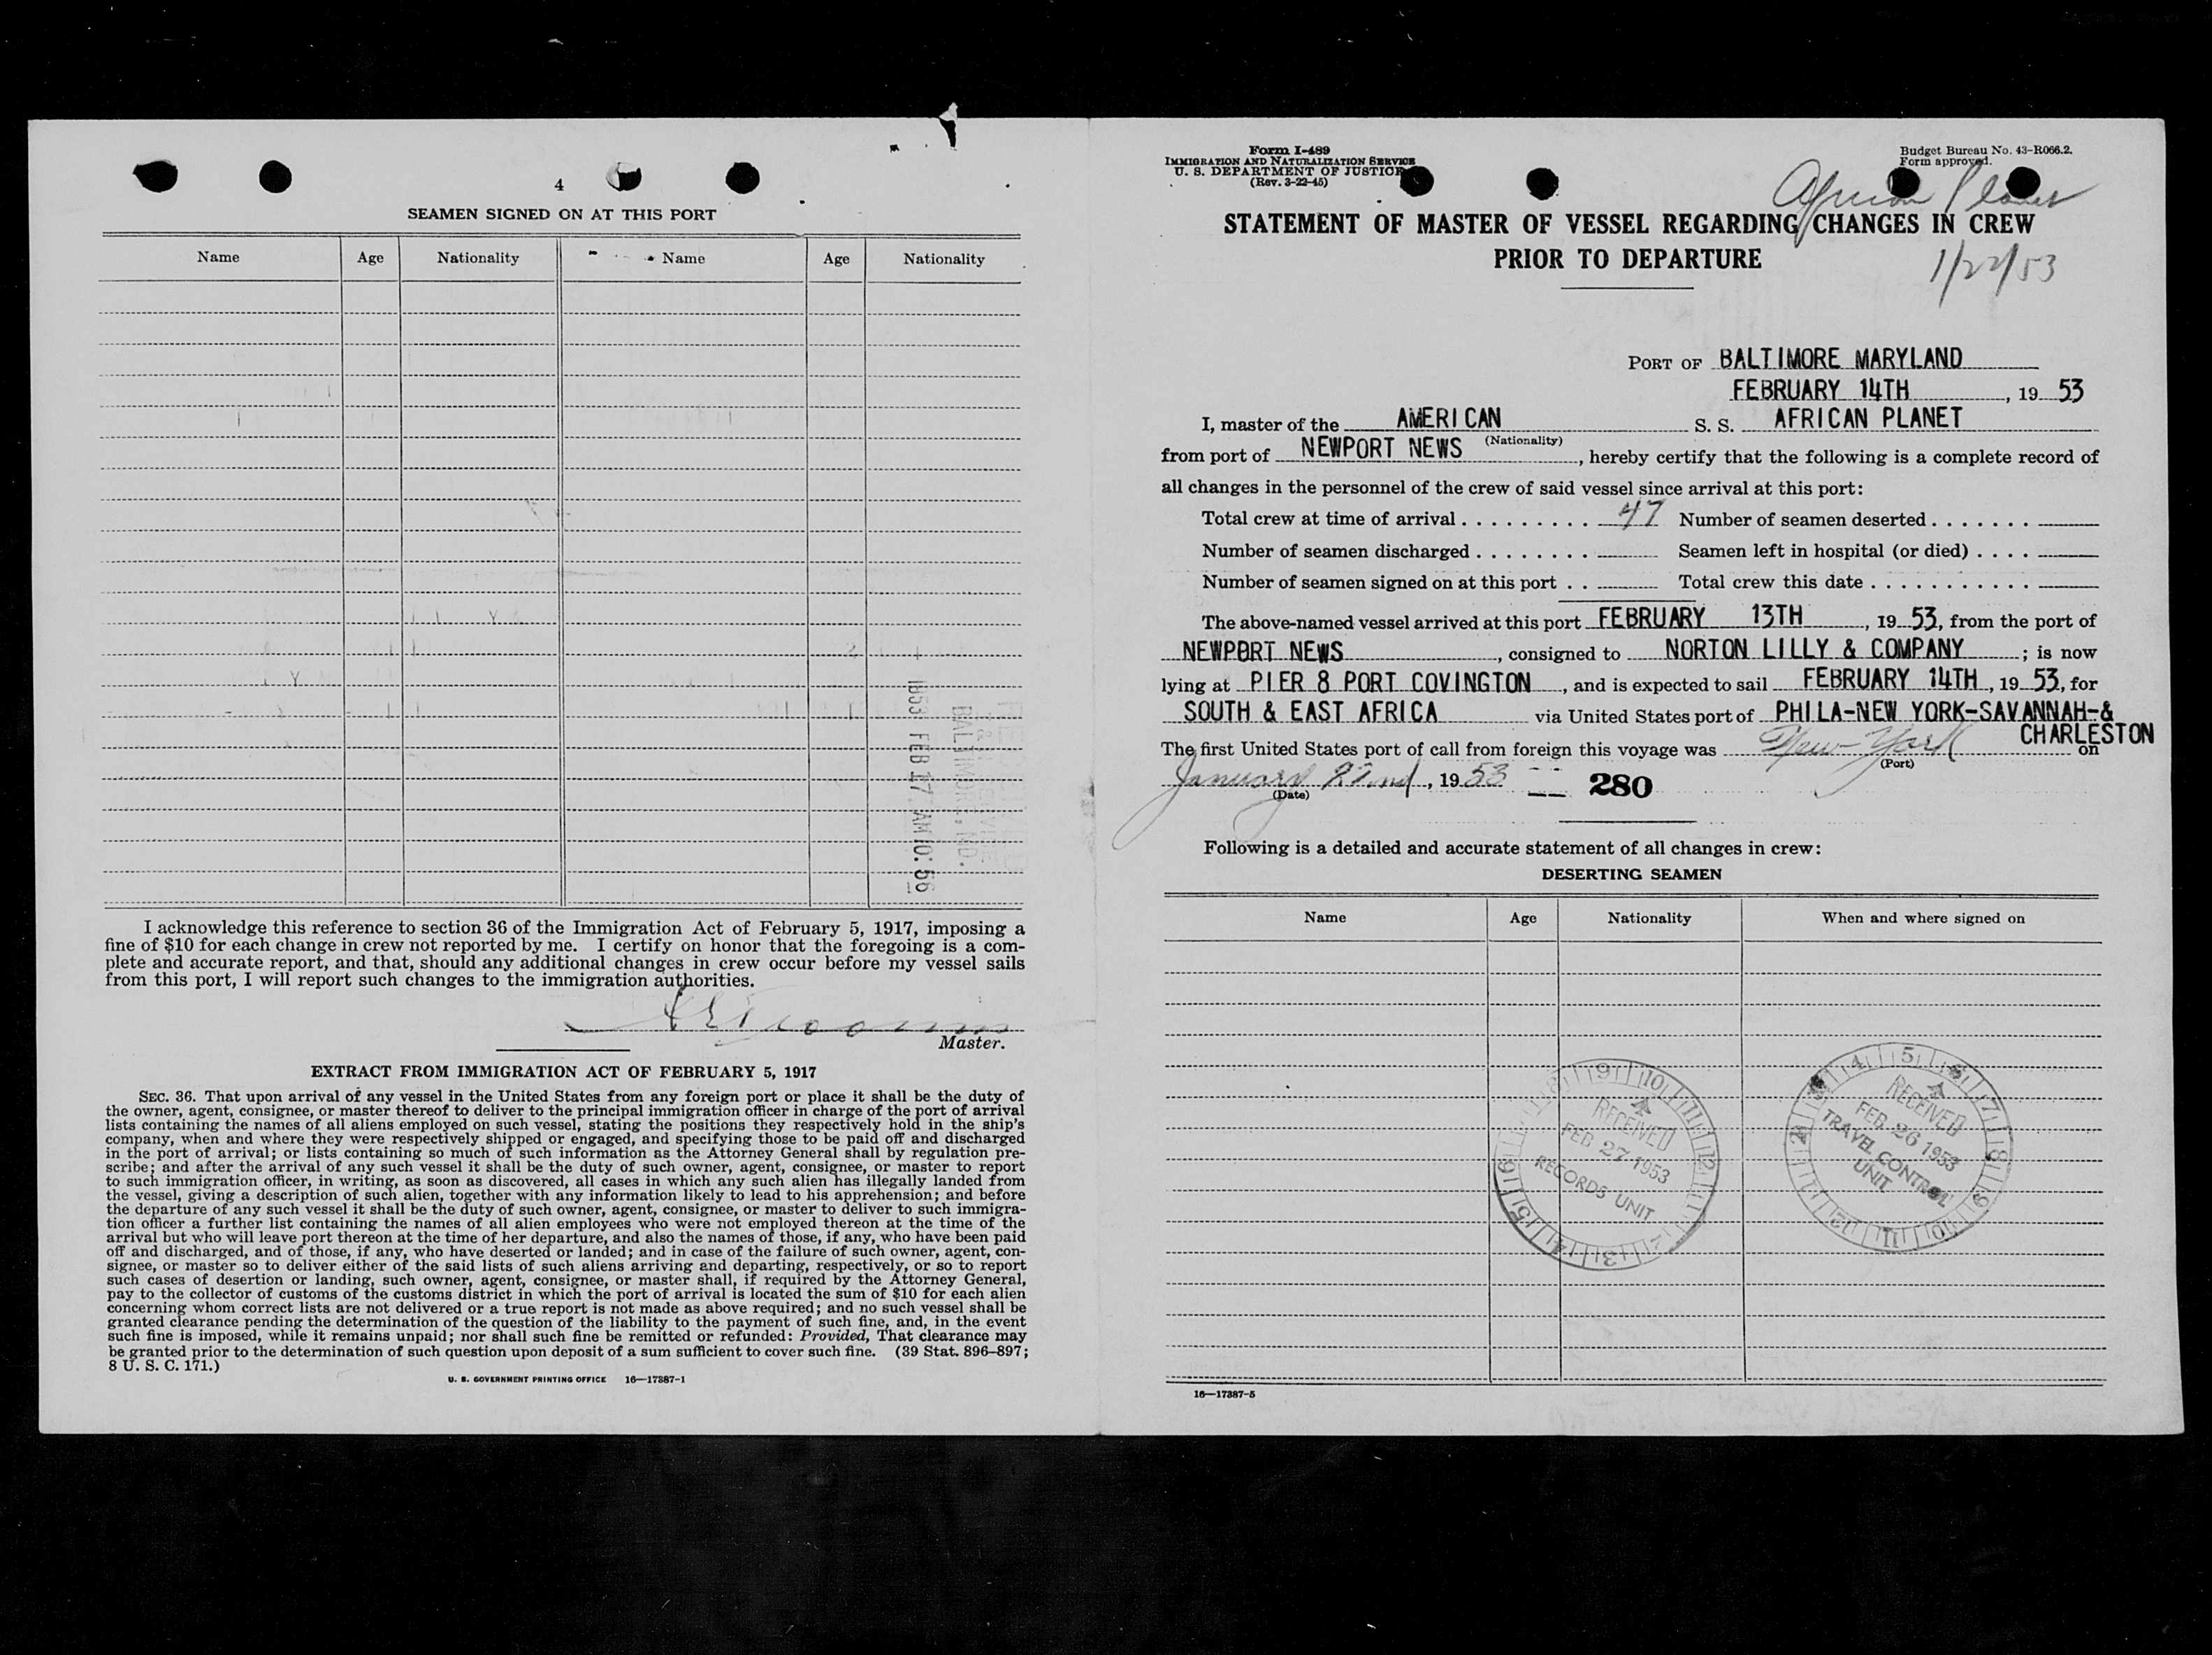 4
SEAMEN SIGNED ON AT THIS PORT
Name Age Nationality Name Age Nationality
1953 FEB 17 AM 10:56
BALTIMORE, MD.
I acknowledge this reference to section 36 of the Immigration Act of February 5, 1917, imposing a
fine of $10 for each change in crew not reported by me. I certify on honor that the foregoing is a com-
plete and accurate report, and that, should any additional changes in crew occur before my vessel sails
from this port, I will report such changes to the immigration authorities.
Master.
EXTRACT FROM IMMIGRATION ACT OF FEBRUARY 5, 1917
SEC. 36. That upon arrival of any vessel in the United States from any foreign port or place it shall be the duty of
the owner, agent, consignee, or master thereof to deliver to the principal immigration officer in charge of the port of arrival
lists containing the names of all aliens employed on such vessel, stating the positions they respectively hold in the ship's
company, when and where they were respectively shipped or engaged, and specifying those to be paid off and discharged
in the port of arrival; or lists containing so much of such information as the Attorney General shall by regulation pre-
scribe; and after the arrival of any such vessel it shall be the duty of such owner, agent, consignee, or master to report
to such immigration officer, in writing, as soon as discovered, all cases in which any such alien has illegally landed from
the vessel, giving a description of such alien, together with any information likely to lead to his apprehension; and before
the departure of any such vessel it shall be the duty of such owner, agent, consignee, or master to deliver to such immigra-
tion officer a further list containing the names of all alien employees who were not employed thereon at the time of the
arrival but who will leave port thereon at the time of her departure, and also the names of those, if any, who have been paid
off and discharged, and of those, if any, who have deserted or landed; and in case of the failure of such owner, agent, con-
signee, or master so to deliver either of the said lists of such aliens arriving and departing, respectively, or so to report
such cases of desertion or landing, such owner, agent, consignee, or master shall, if required by the Attorney General,
pay to the collector of customs of the customs district in which the port of arrival is located the sum of $10 for each alien
concerning whom correct lists are not delivered or a true report is not made as above required; and no such vessel shall be
granted clearance pending the determination of the question of the liability to the payment of such fine, and, in the event
such fine is imposed, while it remains unpaid; nor shall such fine be remitted or refunded: Provided, That clearance may
be granted prior to the determination of such question upon deposit of a sum sufficient to cover such fine. (39 Stat. 896–897;
8 U. S. C. 171.)
U. S. GOVERNMENT PRINTING OFFICE 16—17387-1
Form I-489
IMMIGRATION AND NATURALIZATION SERVICE
U. S. DEPARTMENT OF JUSTICE
(Rev. 3-22-45)
Budget Bureau No. 43-R066.2.
Form approved.
African Planet
STATEMENT OF MASTER OF VESSEL REGARDING CHANGES IN CREW
PRIOR TO DEPARTURE
1/22/53
PORT OF BALTIMORE MARYLAND
FEBRUARY 14TH, 19 53
I, master of the AMERICAN S. S. AFRICAN PLANET
(Nationality)
from port of NEWPORT NEWS, hereby certify that the following is a complete record of
all changes in the personnel of the crew of said vessel since arrival at this port:
Total crew at time of arrival . . . . . . . . . 47 Number of seamen deserted . . . . . . .
Number of seamen discharged . . . . . . . . Seamen left in hospital (or died) . . . .
Number of seamen signed on at this port . . Total crew this date . . . . . . . . . . .
The above-named vessel arrived at this port FEBRUARY 13TH, 19 53, from the port of
NEWPORT NEWS, consigned to NORTON LILLY & COMPANY; is now
lying at PIER 8 PORT COVINGTON, and is expected to sail FEBRUARY 14TH, 19 53, for
SOUTH & EAST AFRICA via United States port of PHILA-NEW YORK-SAVANNAH-&
CHARLESTON
The first United States port of call from foreign this voyage was New-York on
(Port)
January 22nd, 19 53 280
(Date)
Following is a detailed and accurate statement of all changes in crew:
DESERTING SEAMEN
Name Age Nationality When and where signed on
RECEIVED
FEB 27 1953
RECORDS UNIT
RECEIVED
FEB 26 1953
TRAVEL CONTROL
UNIT
16—17387-5